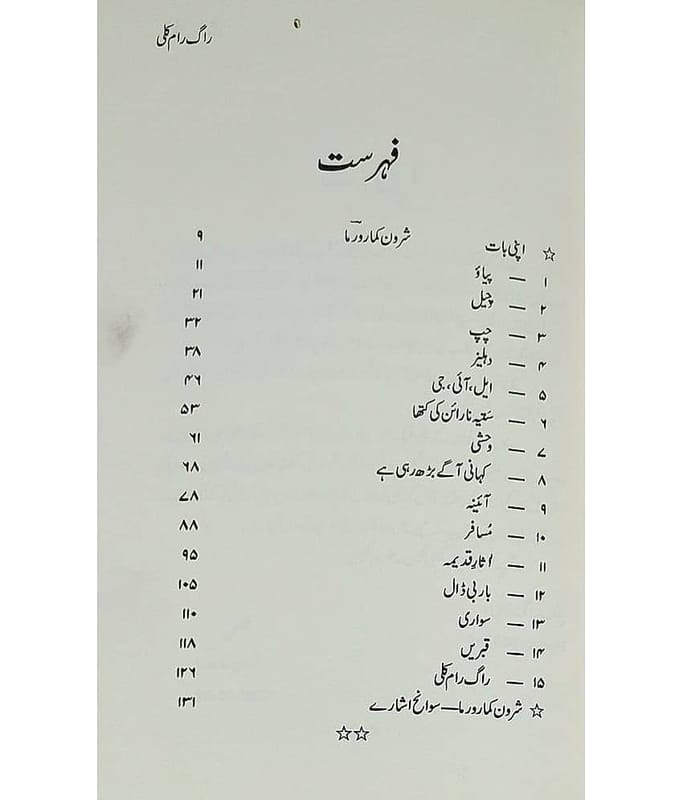 راگ رام کلی
فہرست
☆ اپنی بات شرون کمار ورما ۹
۱ — پیاؤ ۱۱
۲ — چیل ۲۱
۳ — چپ ۳۲
۴ — دہلیز ۳۸
۵ — ایل، آئی، جی ۴۶
۶ — ستیہ نارائن کی کتھا ۵۳
۷ — وحشی ۶۱
۸ — کہانی آگے بڑھ رہی ہے ۶۸
۹ — آئینہ ۷۸
۱۰ — مُسافر ۸۸
۱۱ — اثارِ قدیمہ ۹۵
۱۲ — باربی ڈال ۱۰۵
۱۳ — سواری ۱۱۰
۱۴ — قبریں ۱۱۸
۱۵ — راگ رام کلی ۱۲۶
☆ شرون کمار ورما — سوانح اشارے ۱۳۱
☆☆